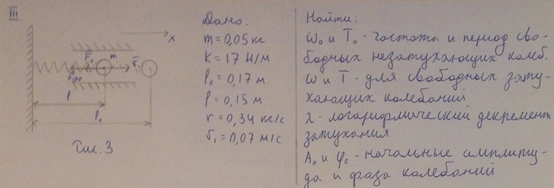 III.
Дано:
m = 0,05 кг
K = 17 Н/м
l₀ = 0,17 м
l = 0,15 м
r = 0,34 кг/с
v₁ = 0,07 м/с
Найти:
ω₀ и T₀ - частота и период сво-
бодных незатухающих колеб.
ω и T - для свободных зату-
хающих колебаний
λ - логарифмический декремент
затухания
A₀ и φ₀ - начальные амплиту-
да и фаза колебаний
m
x
l
l₀
Рис. 3